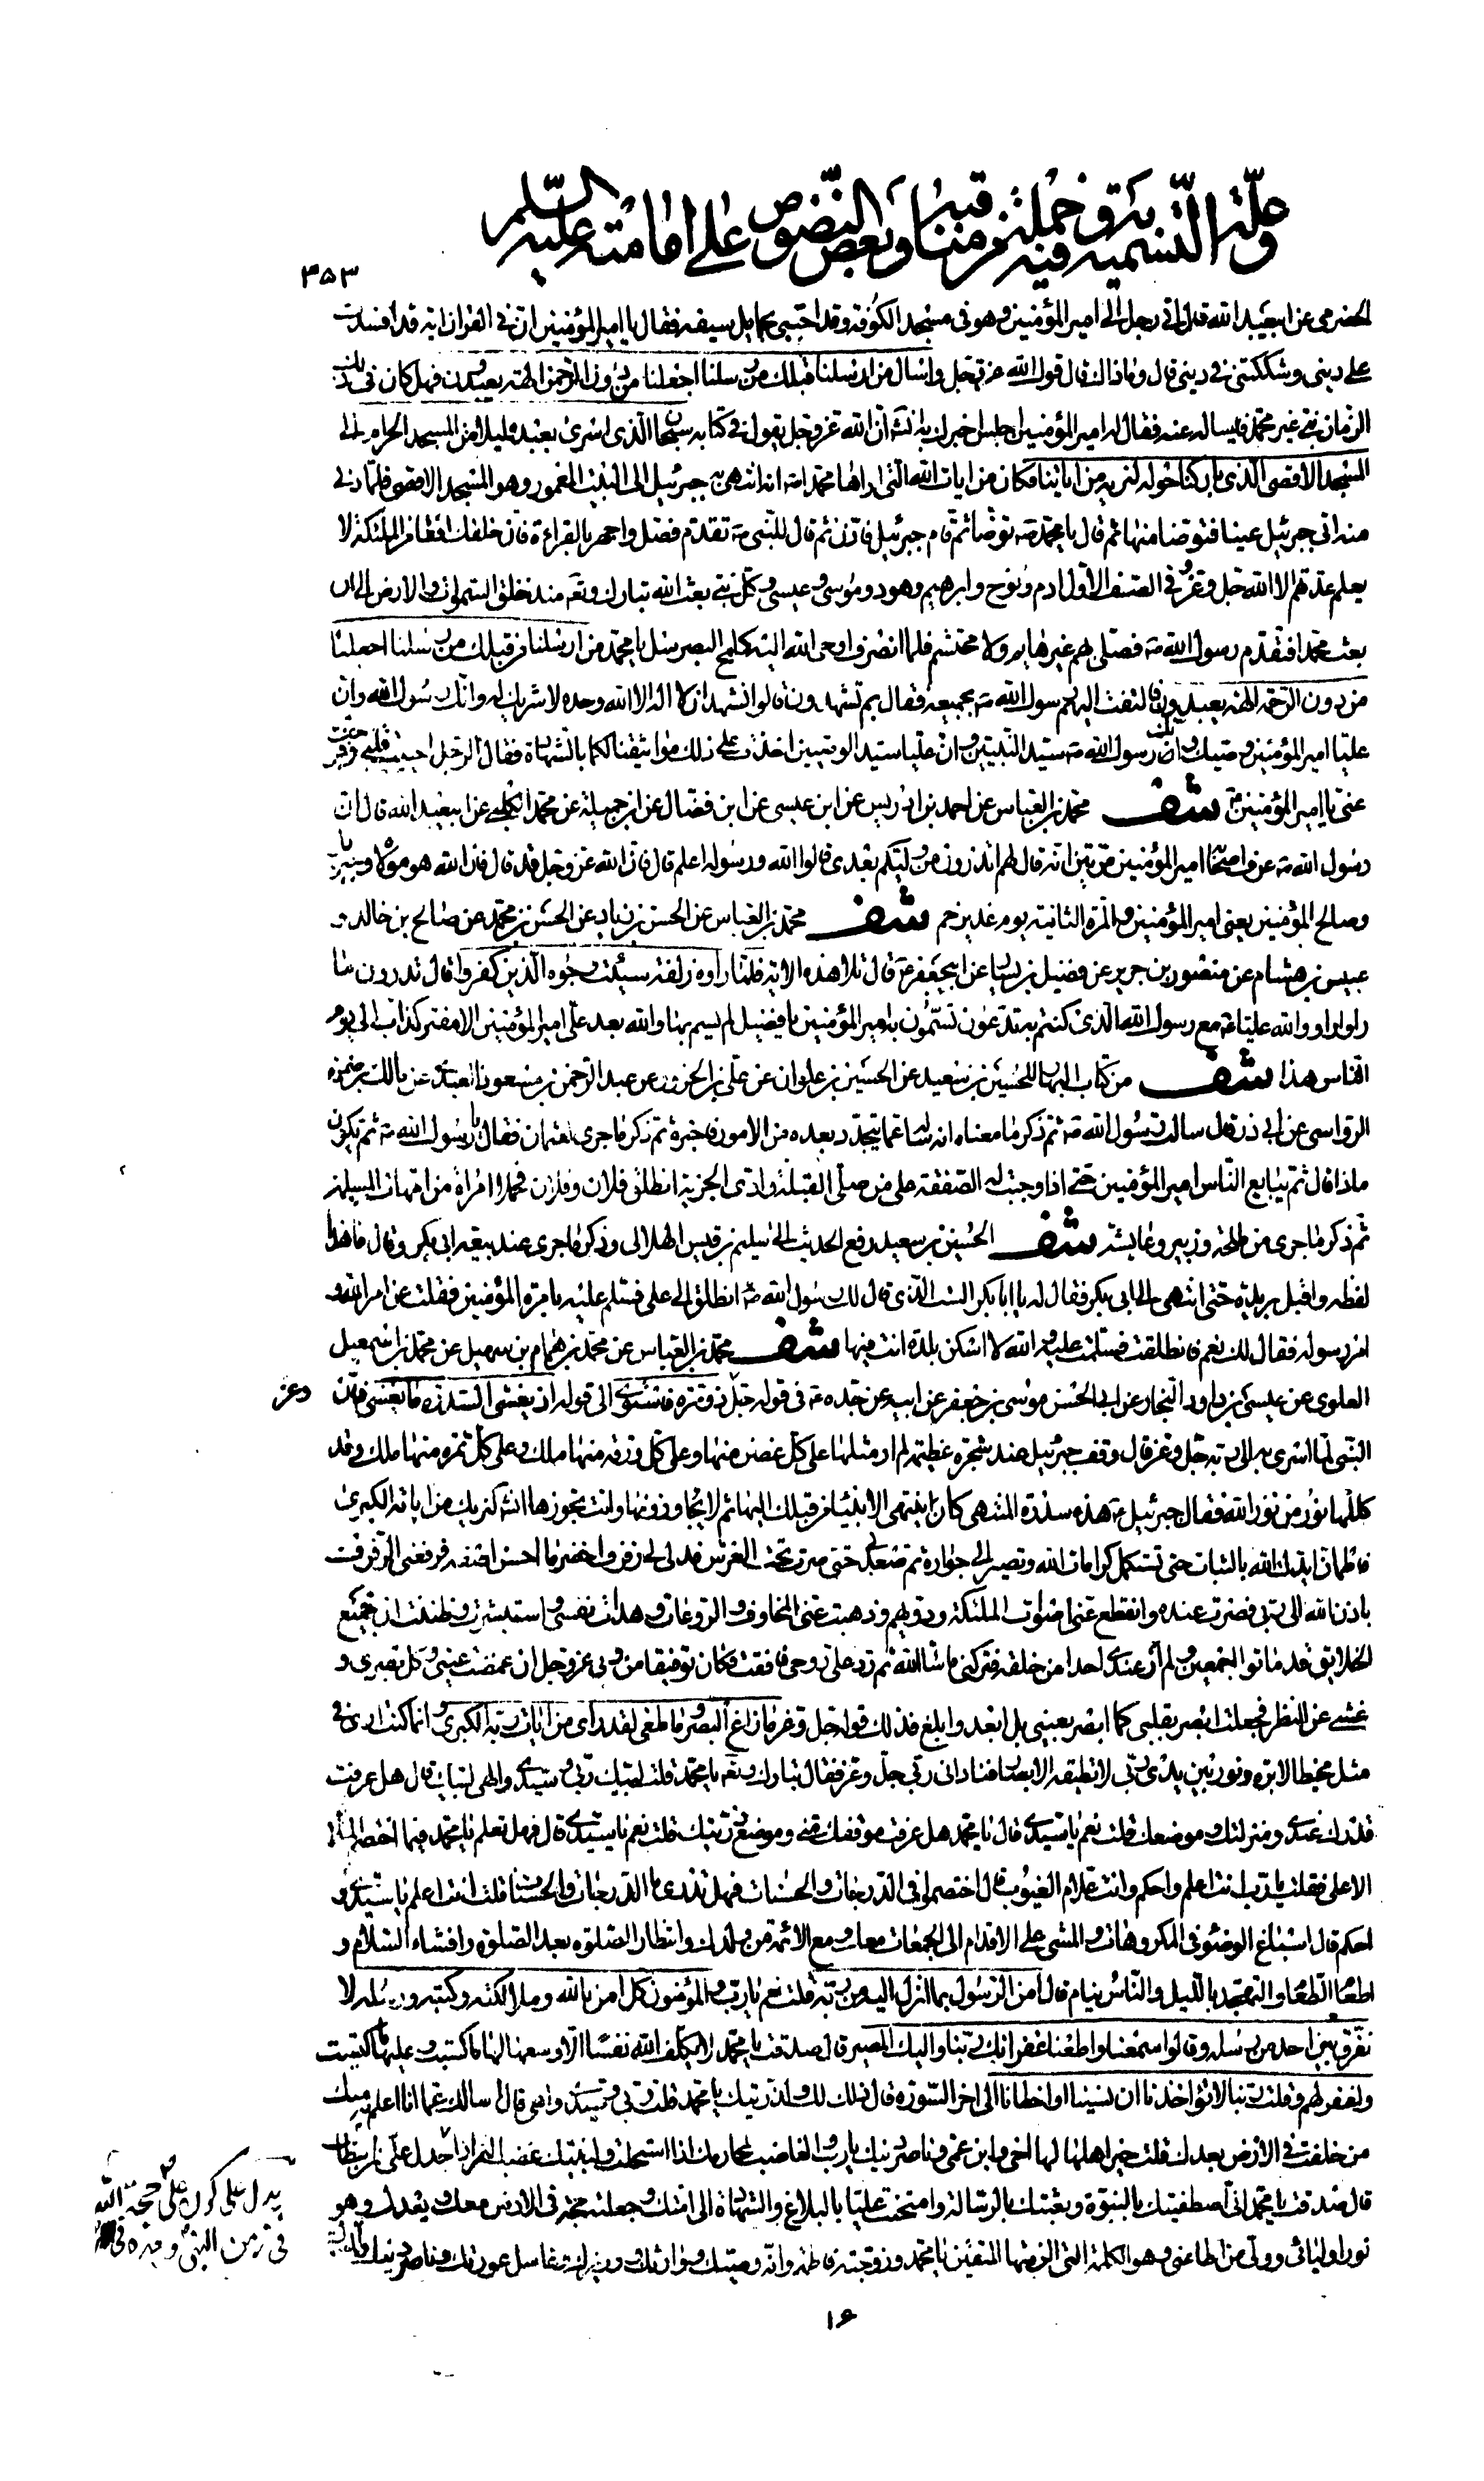 وعلّة التسمية به وفيه جملة من مناقبه وبعض النصوص على امامته عليه السّلام
٣٥٣
الحضرمي عن ابيعبد الله قال اتى رجل الى امير المؤمنين وهو في مسجد الكوفة وقد احتبى بحمايل سيفه فقال يا امير المؤمنين ان في القران اية قد افسدت
على ديني وشككتني في ديني قال وما ذاك قال قول الله عز وجل واسال من ارسلنا قبلك من رسلنا اجعلنا من دون الرحمن الهة يعبدون فهل كان في ذلك
الزمان نبي غير محمد فيساله عنه فقال له امير المؤمنين اجلس اخبرك به انش ان الله عز وجل يقول في كتابه سبحان الذي اسرى بعبده ليلا من المسجد الحرام الى
المسجد الاقصى الذي باركنا حوله لنريه من اياتنا فكان من ايات الله التي اراها محمدا ص انه انتهى به جبرئيل الى البيت المعمور وهو المسجد الاقصى فلما دنى
منه اتى جبرئيل عينا فتوضا منها ثم قال يا محمد ص توضا ثم قام جبرئيل فاذن ثم قال للنبي ص تقدم فصل واجهر بالقراءة فان خلفك افقا من الملئكة لا
يعلم عدتهم الا الله جل وعز وفي الصف الاول ادم ونوح وابرهيم وهود وموسى وعيسى وكل نبي بعث الله تبارك وتعه منذ خلق السموات والارض الى ان
بعث محمدا فتقدم رسول الله ص فصلى بهم غير هايب ولا محتشم فلما انصرف اوحى الله اليه كلمح البصر سل يا محمد من ارسلنا من قبلك من رسلنا اجعلنا
من دون الرحمن الهة يعبدون فالتفت اليهم رسول الله ص بجميعه فقال بم تشهدون قالوا نشهد ان لا اله الا الله وحده لا شريك له وانك رسول الله وان
عليا امير المؤمنين وصيك وانك رسول الله ص سيد النبيين وان عليا سيد الوصيين اخذت على ذلك مواثيقنا لكما بالشهادة فقال الرجل احييت قلبي وفرجت
عني يا امير المؤمنين شف محمد بن العباس عن احمد بن ادريس عن ابن عيسى عن ابن فضال عن ابي جميلة عن محمد الحلبي عن ابيعبد الله قال ان
رسول الله ص عرف اصحابه امير المؤمنين مرتين انه قال لهم اتدرون من وليكم بعدي قالوا الله ورسوله اعلم قال فان الله عز وجل قد قال فان الله هو موليه وجبريل
وصالح المؤمنين يعني امير المؤمنين والمرة الثانية يوم غدير خم شف محمد بن العباس عن الحسن بن زياد عن الحسن بن محمد عن صالح بن خالد و
عبيس بن هشام عن منصور بن حرير عن فضيل بن يسار عن ابيجعفر ع قال تلا هذه الاية فلما راوه زلفة سيئت وجوه الذين كفروا قال تدرون ما
راوا راوا والله عليا ع مع رسول الله الذي كنتم به تدعون تسمون بامير المؤمنين يا فضيل لم يسم بها والله بعد علي امير المؤمنين الا مفتر كذاب الى يوم
الناس هذا شف من كتاب البهار للحسين بن سعيد عن الحسين بن علوان عن علي بن الحزور عن عبد الرحمن بن مسعود العبدي عن مالك بن ضمرة
الرواسي عن ابي ذر قال سالت رسول الله ص ثم ذكر ما معناه انه ساله عما يتجدد بعده من الامور فاخبره ثم ذكر ما جرى لعثمان فقال يا رسول الله ص ثم يكون
ماذا قال ثم يبايع الناس امير المؤمنين حتى اذا وجبت له الصفقة على من صلى القبلة وادى الجزية انطلق فلان وفلان فحملا امراة من امهات المسلمين
ثم ذكر ما جرى من طلحة وزبير وعايشة شف الحسين بن سعيد رفع الحديث الى سليم بن قيس الهلالي وذكر ما جرى عند بيعة ابي بكر وقال ما هذا
لفظه واقبل بريدة حتى انتهى الى ابي بكر فقال له يا ابا بكر الست الذي قال لك رسول الله ص انطلق الى علي فسلم عليه بامرة المؤمنين فقلت عن امر الله و
امر رسوله فقال لك نعم فانطلقت فسلمت عليه والله لا اسكن بلدة انت فيها شف محمد بن العباس عن محمد بن همام بن سهيل عن محمد بن اسمعيل
العلوي عن عيسى بن داود النجار عن ابي الحسن موسى بن جعفر عن ابيه عن جده ع في قوله جل وعز ذو مرة فاستوى الى قوله اذ يغشى السدرة ما يغشى فان
النبي لما اسرى به الى ربه جل وعز قال وقف جبرئيل عند شجرة عظيمة لم ار مثلها على كل غصن منها وعلى كل ورقة منها ملك وعلى كل ثمرة منها ملك وقد
كللها نور من نور الله فقال جبرئيل ع هذه سدرة المنتهى كان ينتهي الانبياء من قبلك اليها ثم لا يتجاوزونها وانت تجوزها انشا الله ليريك من اياته الكبرى
فاطمان ايدك الله بالثبات حتى تستكمل كرامات الله وتصير الى جواره ثم صعد بي حتى صرت تحت العرش فدلي لي رفرف اخضر ما احسن اصفه فرفعني الرفرف
باذن الله الى ربي فصرت عنده وانقطع عني اصوات الملئكة ودويهم وذهبت عني المخاوف والروعات وهدات نفسي واستبشرت وظننت ان جميع
الخلايق قد ماتوا اجمعين ولم ار عندي احدا من خلقه فتركني ما شاء الله ثم رد علي روحي فافقت فكان توفيقا من ربي عز وجل ان غمضت عيني وكل بصري و
غشي عن النظر فجعلت ابصر بقلبي كما ابصر بعيني بل ابعد وابلغ فذلك قوله جل وعز ما زاغ البصر وما طغى لقد راى من ايات ربه الكبرى وانما كنت ارى في
مثل مخيط الابرة ونور بين يدي ربي لا تطيقه الابصار فناداني ربي جل وعز فقال تبارك وتعه يا محمد قلت لبيك ربي وسيدي والهي لبيك قال هل عرفت
قدرك عندي ومنزلتك وموضعك قلت نعم يا سيدي قال يا محمد هل عرفت موقفك مني وموضع ذريتك قلت نعم يا سيدي قال فهل تعلم يا محمد فيما اختصم الملا
الاعلى فقلت يا رب انت اعلم واحكم وانت علام الغيوب قال اختصموا في الدرجات والحسنات فهل تدري ما الدرجات والحسنات قلت انت اعلم يا سيدي و
احكم قال اسباغ الوضوء في المكروهات والمشي على الاقدام الى الجمعات معك ومع الائمة من ولدك وانتظار الصلوة بعد الصلوة وافشاء السلام و
اطعام الطعام والتهجد بالليل والناس نيام قال امن الرسول بما انزل اليه من ربه قلت نعم يا رب والمؤمنون كل امن بالله وملائكته وكتبه ورسله لا
نفرق بين احد من رسله وقالوا سمعنا واطعنا غفرانك ربنا واليك المصير قال صدقت يا محمد لا يكلف الله نفسا الا وسعها لها ما كسبت وعليها ما اكتسبت
واغفر لهم وقلت ربنا لا تؤاخذنا ان نسينا او اخطانا الى اخر السورة قال ذلك لك ولذريتك يا محمد قلت ربي وسيدي والهي قال اسالك عما انا اعلم به منك
من خلفت في الارض بعدك قلت خير اهلها لها اخي وابن عمي وناصر دينك يا رب والغاضب لمحارمك اذا استحلت ولنبيك غضب النمر اذا جدل علي بن ابيطالب
قال صدقت يا محمد اني اصطفيتك بالنبوة وبعثتك بالرسالة وامتحنت عليا بالبلاغ والشهادة الى امتك وجعلته حجة في الارض معك وبعدك وهو
نور اوليائي وولي من اطاعني وهو الكلمة التي الزمتها المتقين يا محمد وزوجته فاطمة وانه وصيك ووارثك ووزيرك وغاسل عورتك وناصر دينك
وعز
يدل على كون علي حجة الله
في زمن النبي وبعده
١٦